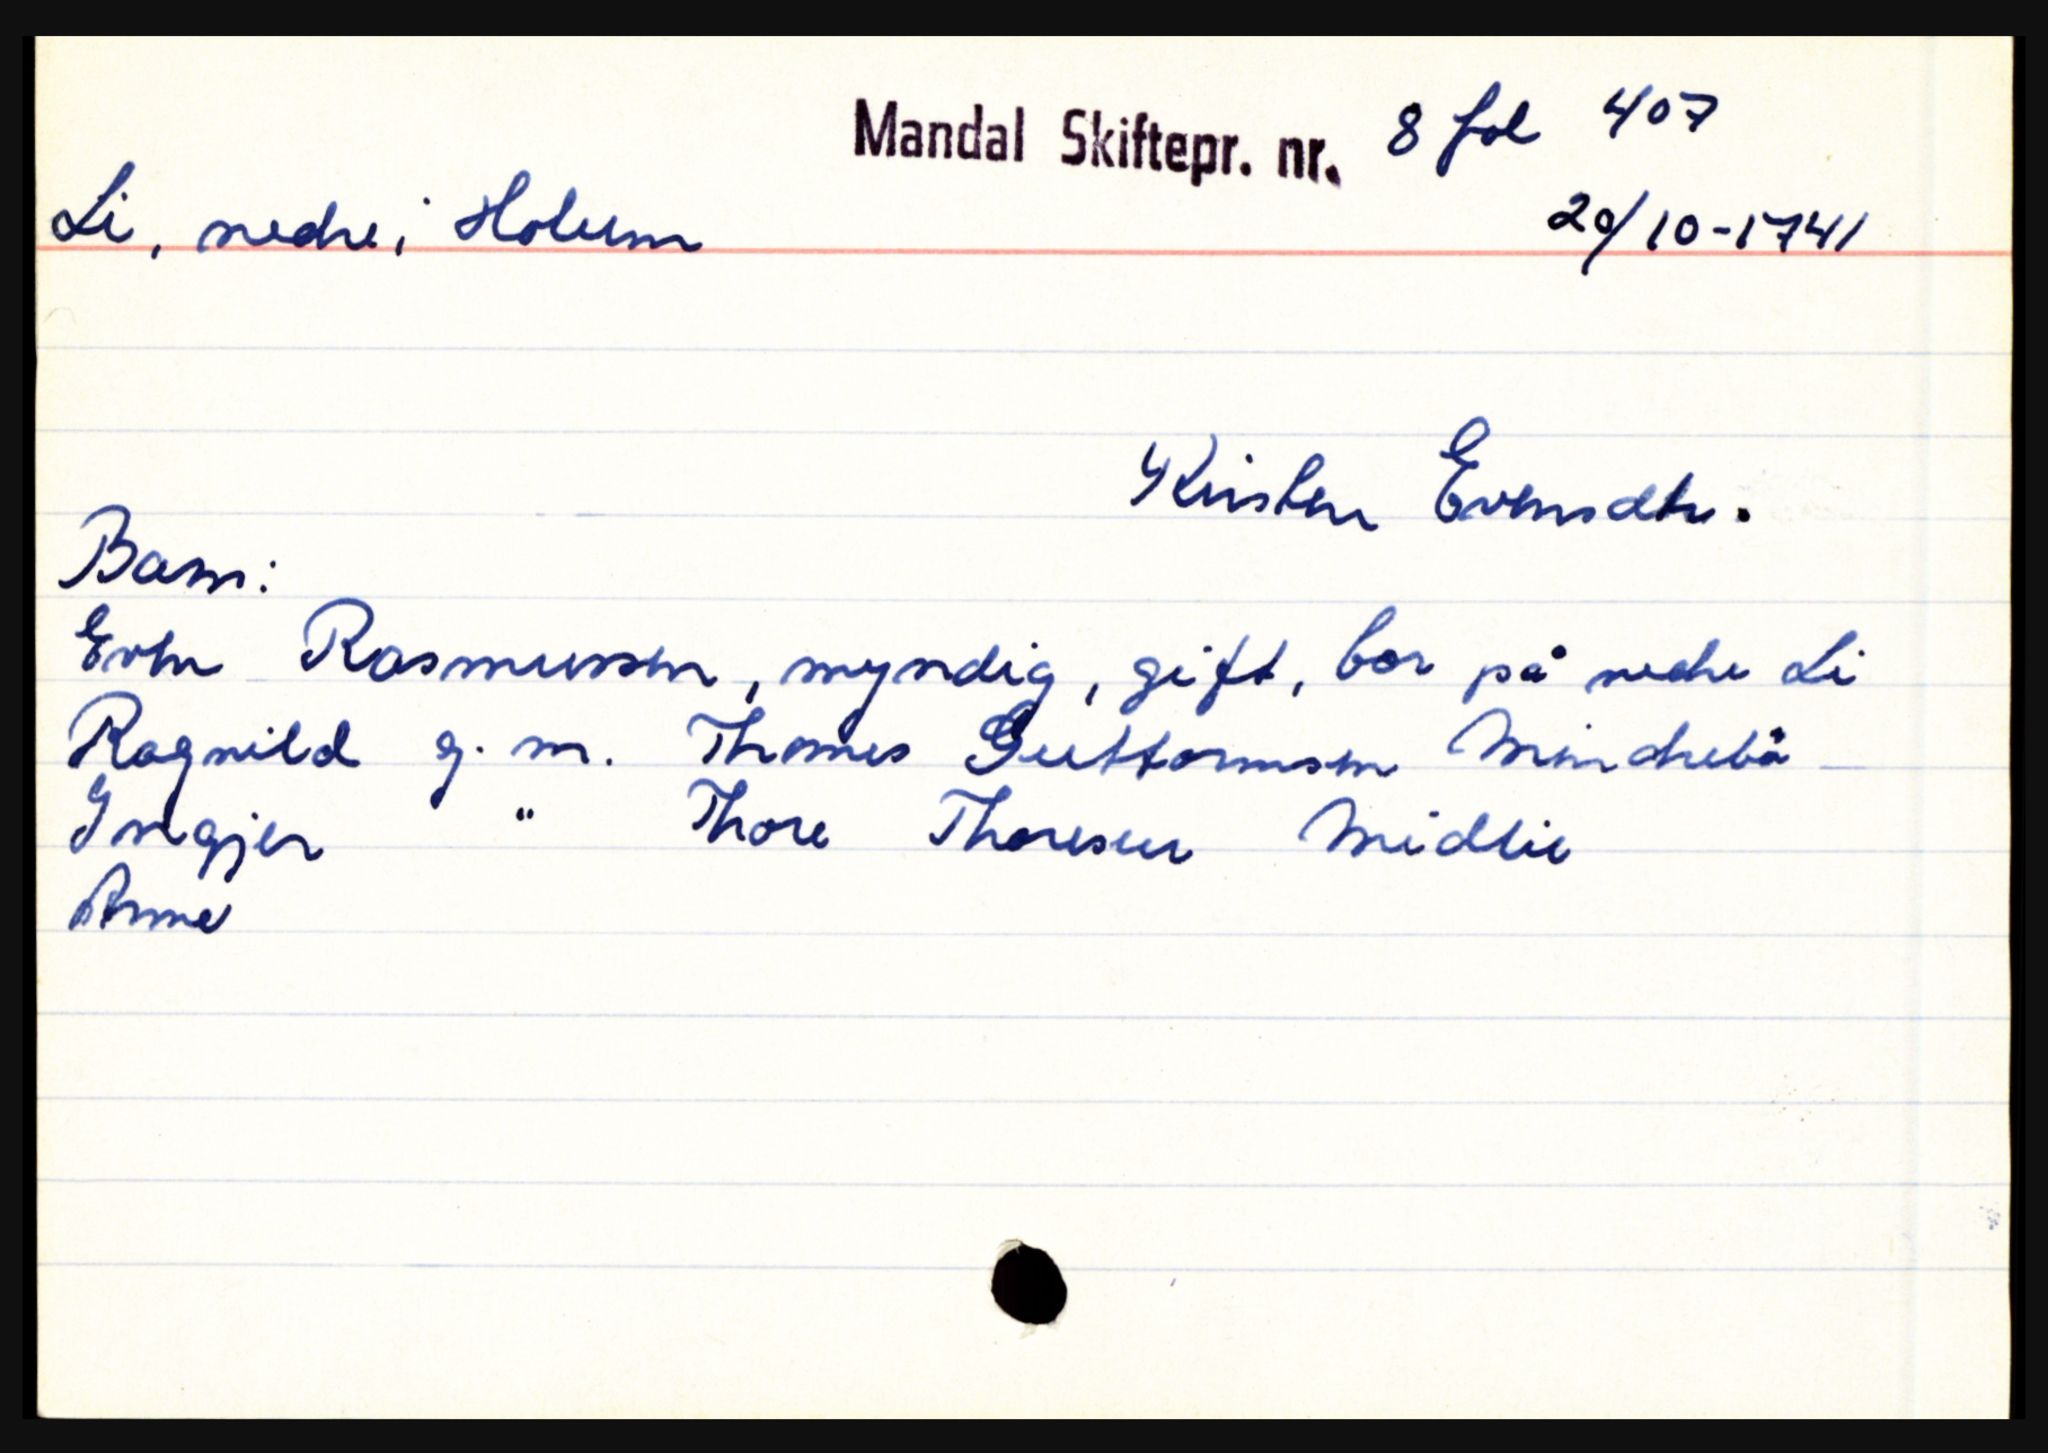 Mandal Skiftepr. nr. 8 fol 407
Li, nedre i Holum 20/10-1741
Kirsten Evensdtr.
Barn:
Even Rasmussen, myndig, gift, bor på nedre Li
Ragnild g. m. Thomes Guttormsen Mindrebö
Ingjer " Thore Thoresen Midlie
Anne